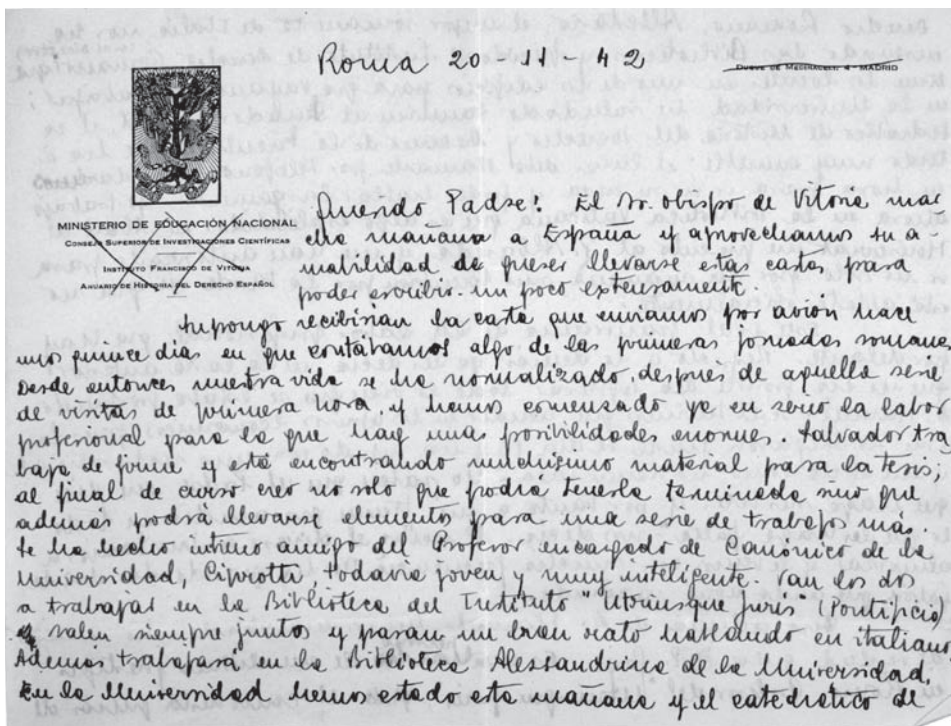 Roma 20-11-42
DUQUE DE MEDINACELI, 4 MADRID
MINISTERIO DE EDUCACIÓN NACIONAL
CONSEJO SUPERIOR DE INVESTIGACIONES CIENTÍFICAS
INSTITUTO FRANCISCO DE VITORIA
ANUARIO DE HISTORIA DEL DERECHO ESPAÑOL
Querido Padre: El Sr. obispo de Vitoria mar
cha mañana a España y aprovechamos su a-
mabilidad de querer llevarse estas cartas para
poder escribir un poco extensamente.
Supongo recibirian la carta que enviamos por avión hace
unos quince dias en que contábamos algo de las primeras jornadas romanas.
Desde entonces nuestra vida se ha normalizado, después de aquella serie,
de visitas de primera hora, y hemos comenzado ya en serio la labor
profesional para la que hay unas posibilidades enormes. Salvador tra
baja de firme y está encontrando muchísimo material para la tesis;
al final de curso creo no solo que podrá tenerla terminada sino que
ademas podrá llevarse elementos para una serie de trabajos mas.
Se ha hecho intimo amigo del Profesor encargado de Canónico de la
Universidad Ciprotti, todavía joven y muy inteligente. Van los dos
a trabajar en la Biblioteca del Instituto "Utriusque juris" (Pontificio)
y salen siempre juntos y pasan un buen rato hablando en italiano
Además trabajará en la Biblioteca Alessandrina de la Universidad.
En la Universidad hemos estado esta mañana y el catedrático de